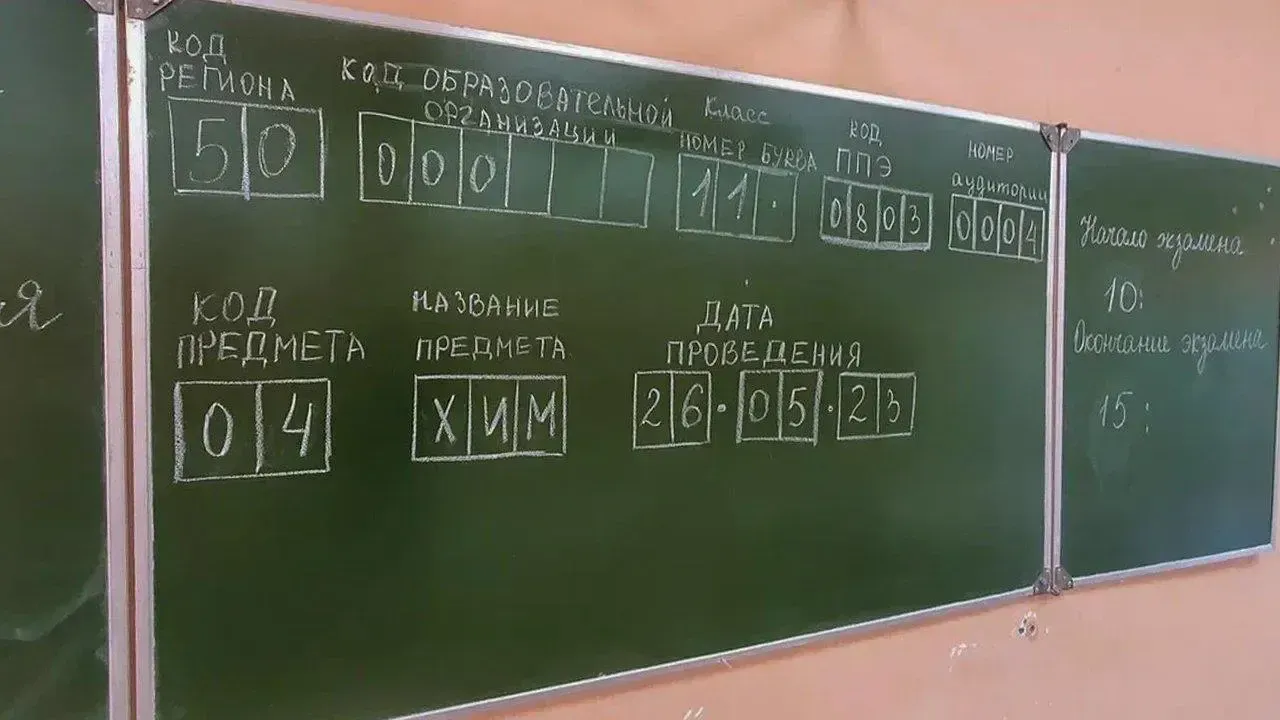 КОД
РЕГИОНА
50
КОД ОБРАЗОВАТЕЛЬНОЙ
ОРГАНИЗАЦИИ
000
Класс
НОМЕР БУКВА
11.
КОД
ППЭ
0803
НОМЕР
аудитории
0004
КОД
ПРЕДМЕТА
04
НАЗВАНИЕ
ПРЕДМЕТА
ХИМ
ДАТА
ПРОВЕДЕНИЯ
26.05.23
Начало экзамена
10:
Окончание экзамена
15:
я